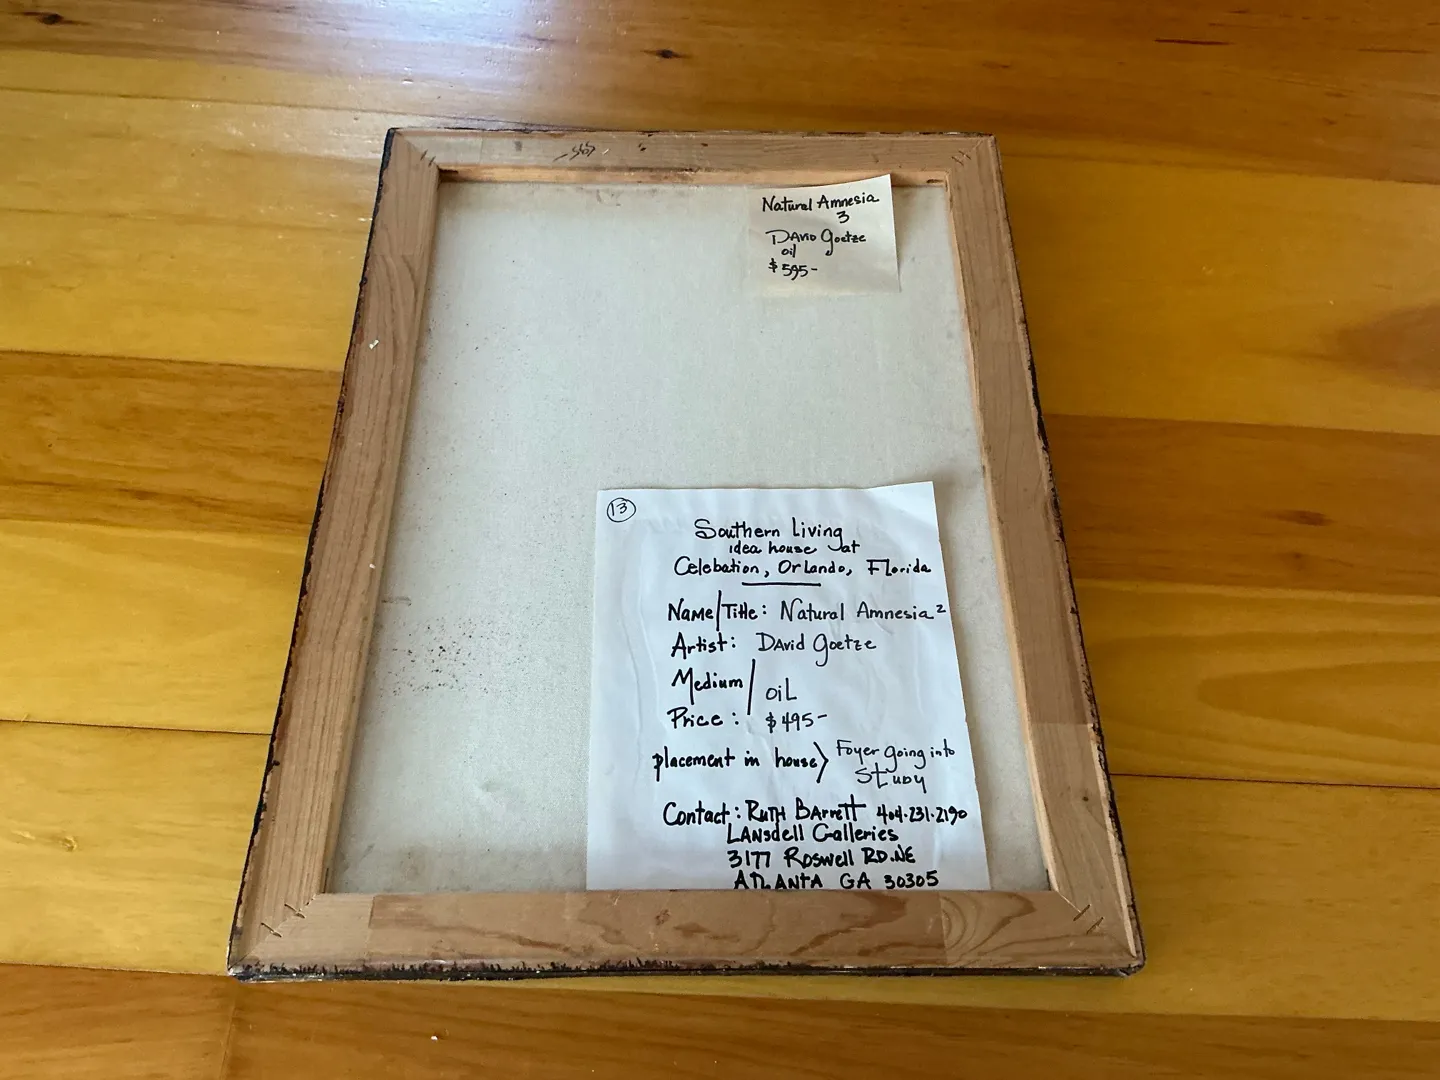 Natural Amnesia
3
David Goetze
oil
$595-
13
Southern Living
idea house at
Celebation, Orlando, Florida
Name/Title: Natural Amnesia 2
Artist: David Goetze
Medium/ oil
Price: $495-
placement in house> Foyer going into
Study
Contact: Ruth Barrett 404.231.2190
Lansdell Galleries
3177 Roswell RD.NE
Atlanta GA 30305